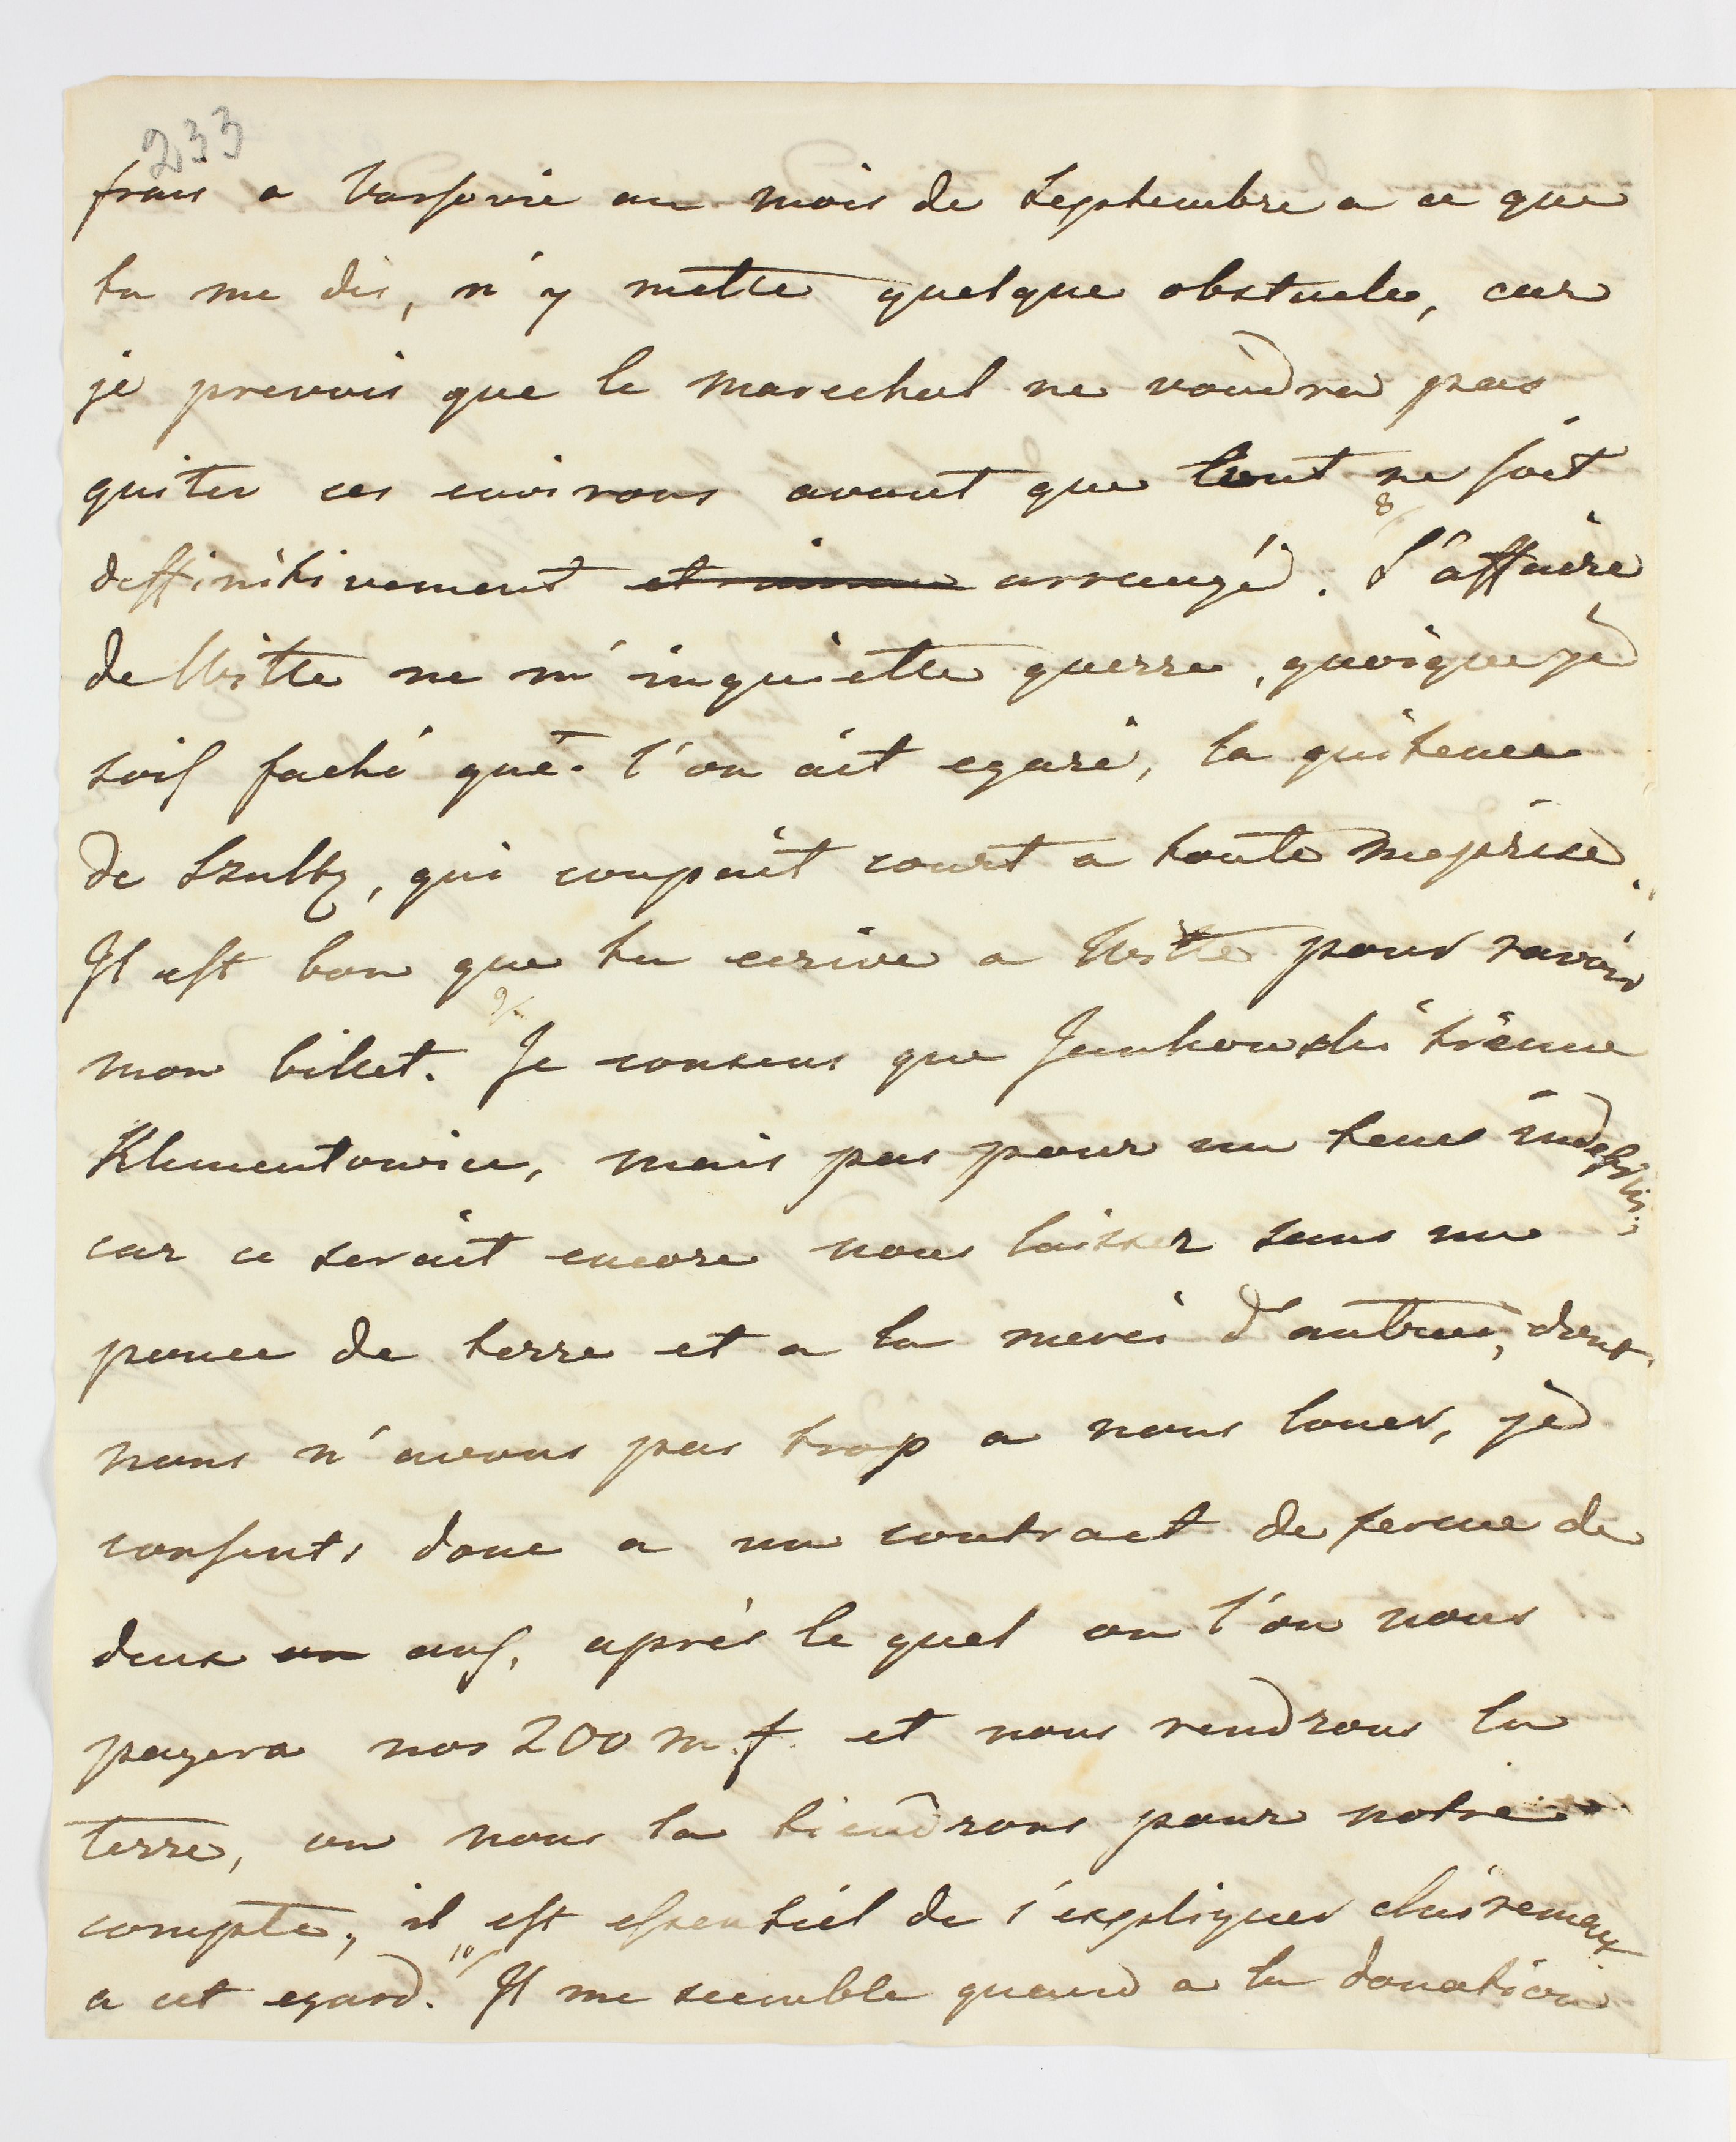 233
frais a Varsovie au mois de Septembre a ce que
tu me dis, n'y mette quelque obstacle, car
je prevois que le marechal ne voudra pas
quiter ces environs avant que tout ne soit
deffinitivement arrangé. 8/ L'affaire
de Witte ne m'inquiette guerre, quoique je
sois faché que l'on ait egaré, la quitence
de Szultz, qui coupait court a toute meprise.
Il est bon que tu ecrive a Witte pour ravoir
mon billet. 9/ Je consens que Jankowski tienne
Klementowice, mais pas pour un tems indefini.
car ce serait encore nous laisser sans un
pouce de terre et a la merci d'autrui, dont
nous n'avons pas trop a nous louer, je
consents donc a un contract de ferme de
deux an ans, après le quel ou l'on nous
payera nos 200 m. f. et nous rendrons la
terre, ou nous la tiendrons pour notre
compte, il est essentiel de s'expliquer clairement
a cet egard. 10/ Il me semble quand a la donation